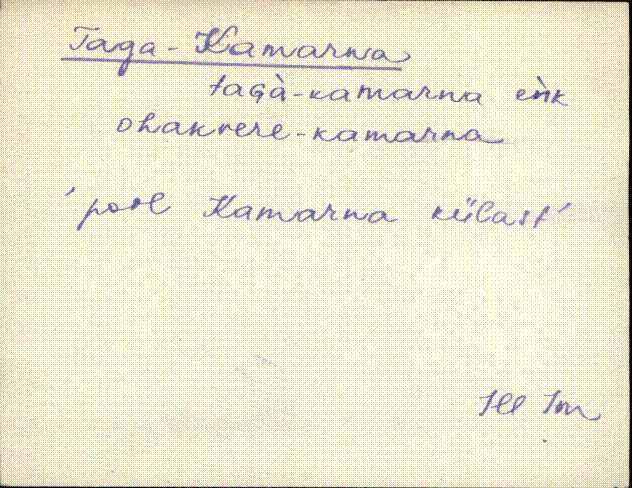 Taga-Kamarna
taGà-kamarna eìk
ohakvere-kamarna
'pool Kamarna külast'